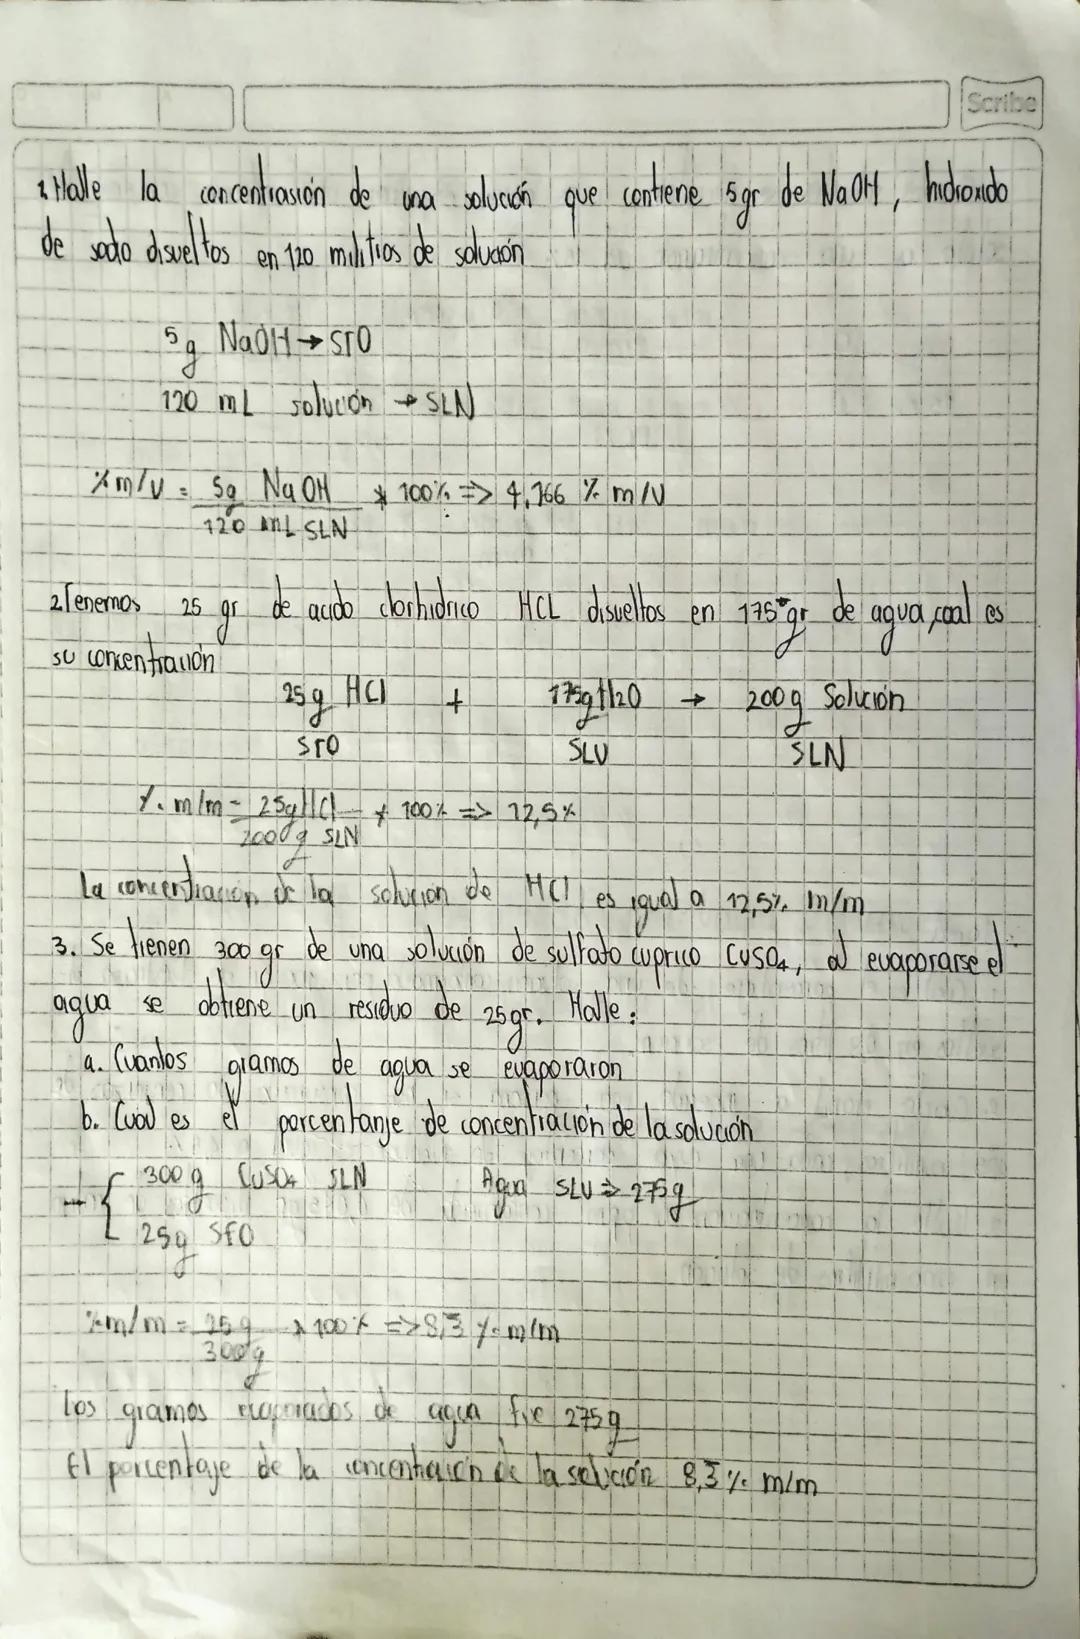 Scribe
1. Halle la concentrasión de una solución que contiene 5gr de NaOH, hidroxido
de sodio disueltos en 120 militros de solución
5g NaOH → STO
120 mL solución → SLN
% m/v = 5g NaOH * 100% => 4,166 % m/v
120 mL SLN
2 Tenemos 25 gr de acido clorhidrico HCL disueltos en 175 gr de agua, coal es
su concentración
25g HCl + 175g H2O → 200g Solución
STO SLV SLN
%. m/m = 25g HCl * 100% => 12,5%
200g SLN
La concentración de la solución de HCl es igual a 12,5% m/m
3. Se tienen 300 gr de una solución de sulfato cuprico CuSO4, al evaporarse el
agua se obtiene un residuo de 25gr. Halle:
a. Cuantos gramos de agua se evaporaron
b. Cual es el porcentanje de concentración de la solución
→ { 300 g CuSO4 SLN Agua SLV => 275g
25g STO
% m/m = 25g * 100% => 8,3 % m/m
300g
Los gramos evaporados de agua fue 275g
El porcentaje de la concentración de la solución 8,3 % m/m